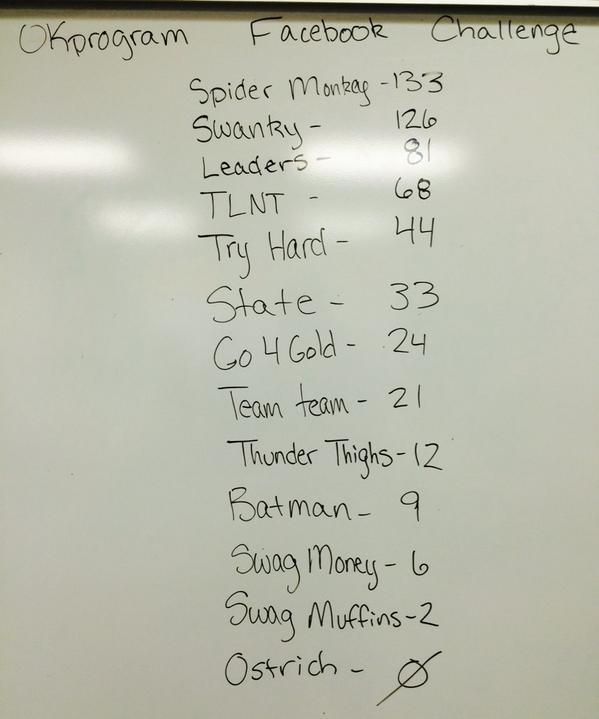 OKprogram Facebook Challenge
Spider Monkey - 133
Swanky - 126
Leaders - 81
TLNT - 68
Try Hard - 44
State - 33
Go 4 Gold - 24
Team team - 21
Thunder Thighs - 12
Batman - 9
Swag Money - 6
Swag Muffins - 2
Ostrich - Ø